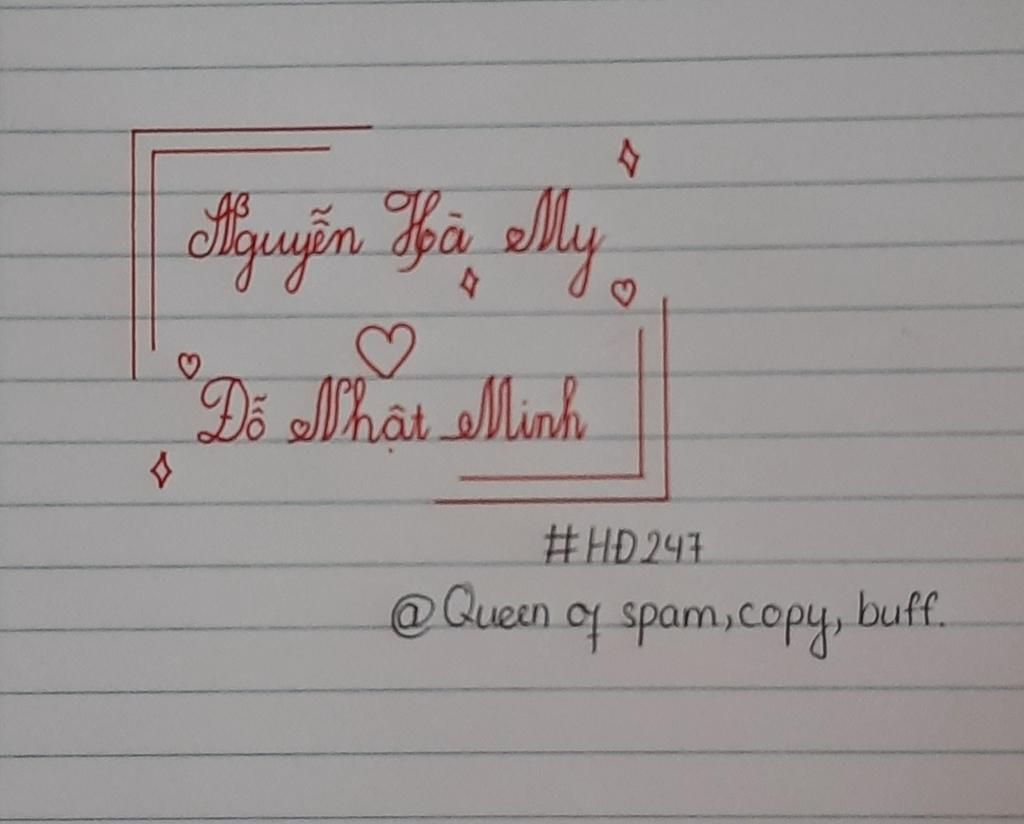 Nguyễn Hà My
Đỗ Nhật Minh
#HĐ247
@Queen of spam, copy, buff.